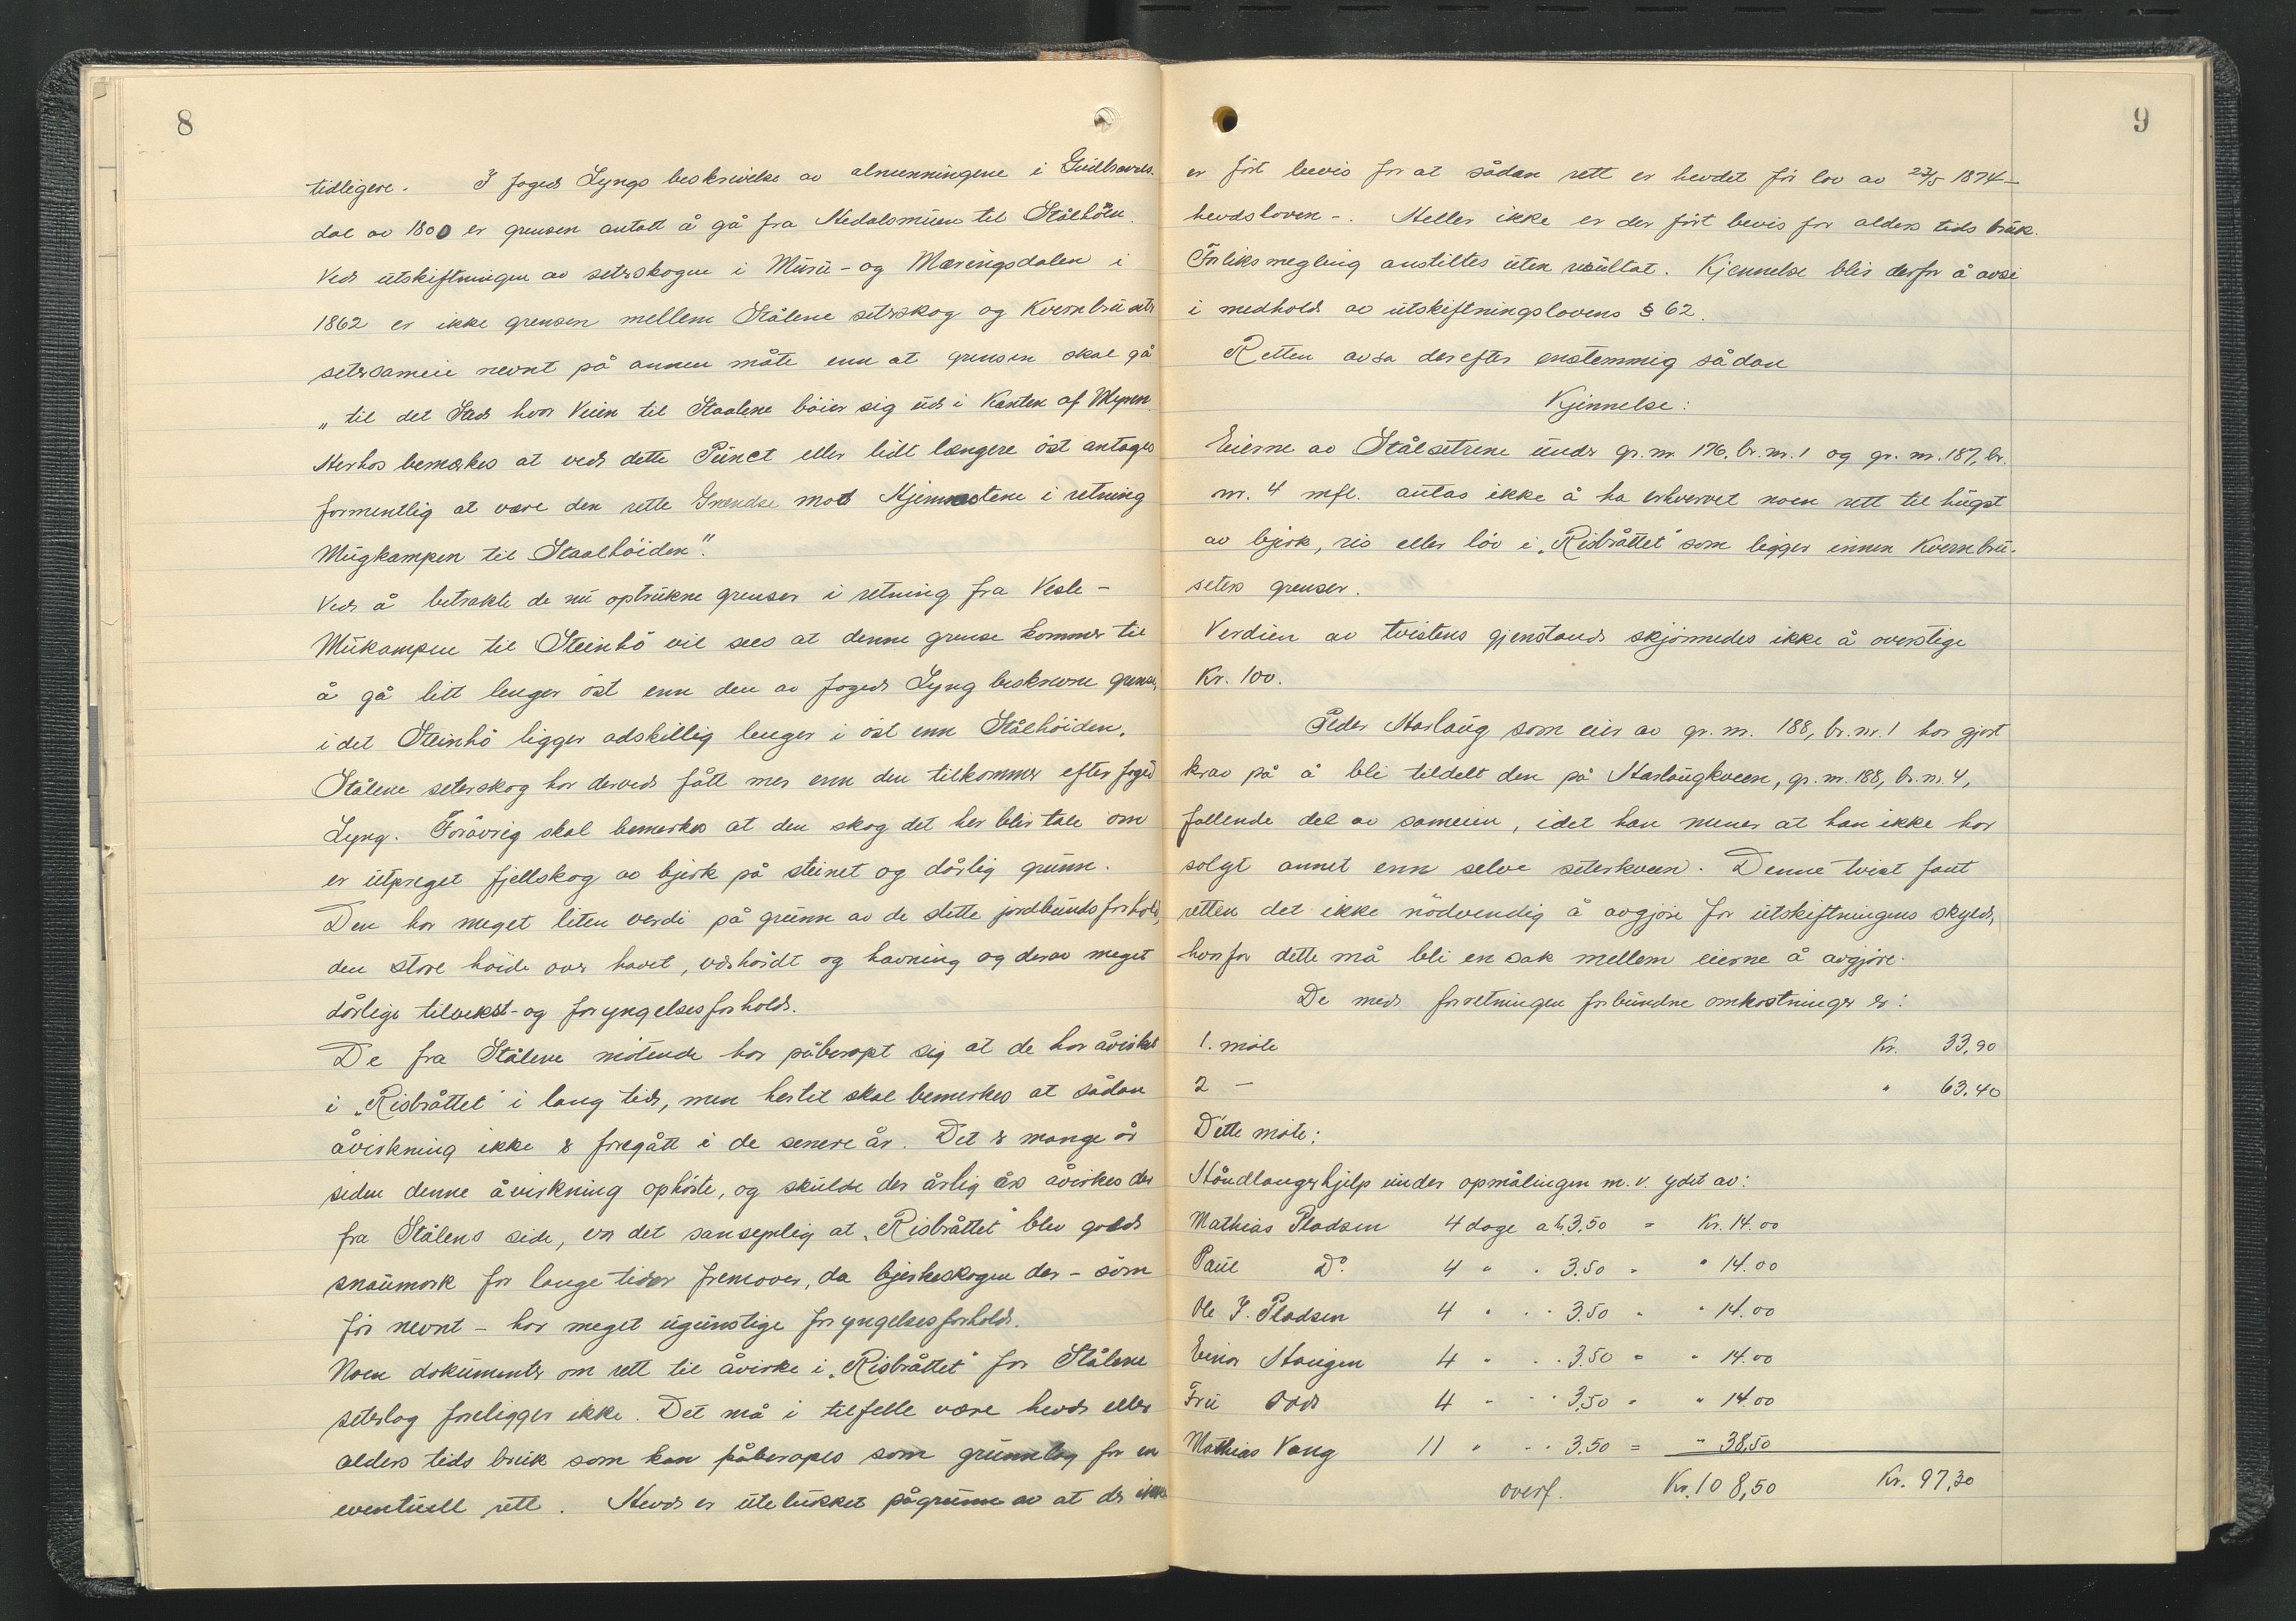 8
tidligere. I foged Lyngs beskrivelse av almenningene i Gudbrands-
dal av 1800 er grensen antatt å gå fra Hedalsmuen til Stålhöin.
Ved utskiftningen av seterskogene i Muru- og Mæringsdalen i
1862 er ikke grensen mellem Stålene seterskog og Kvernbrusetr
setersameie nevnt på annen måte enn at grensen skal gå
„til det Sted hvor Veien til Staalene böier sig ud i Kanten af Myren.
Herhos bemerkes at ved dette Punct eller lidt længere öst antages
formentlig at være den rette Grændse mod Hjemmestene i retning
Mugkampen til Staalhöiden".
Ved å betrakte de nu optrukne grenser i retning fra Vesle-
Mukampen til Steinhö vil sees at denne grense kommer til
å gå litt lenger öst enn den av foged Lyng beskrevne grense,
idet Steinhö ligger adskillig lenger i öst enn Stålhöiden.
Stålene seterskog har derved fått mer enn den tilkommer efter foged
Lyng. Forövrig skal bemerkes at den skog det her blir tale om
er utpreget fjellskog av bjerk på steinet og dårlig grunn.
Den har meget liten verdi på grunn av de slette jordbundsforhold,
den store höide over havet, værhårdt og havning og derav meget
dårlige tilvekst- og foryngelsesforhold.
De fra Stålene mötende har påberopt sig at de har åvirket
i „Risbråttet" i lang tid, men hertil skal bemerkes at sådan
åvirkning ikke er foregått i de senere år. Det er mange år
siden denne åvirkning ophörte, og skulde der årlig års åvirkes der
fra Stålens side, er det sansynlig at „Risbråttet" blev gold
snaumark for lange tider fremover, da bjerkeskogen der – som
för nevnt – har meget ugunstige foryngelsesforhold.
Noen dokumenter om rett til åvirke i „Risbråttet" for Stålene
seterlag foreligger ikke. Det må i tilfelle være hevd eller
alders tids bruk som kan påberopes som grunnlag for en
eventuell rett. Hevd er utelukket på grunn av at der ikke
9
er fört bevis for at sådan rett er hevdet för lov av 23/5 1874 –
hevdsloven –. Heller ikke er der fört bevis for alders tids bruk.
Forliksmegling anstiltes uten resultat. Kjennelse blir derfor å avsi
i medhold av utskiftningslovens § 62.
Retten avsa derefter enstemmig sådan
Kjennelse:
Eierne av Stålsetrene under gr. nr. 176, br. nr. 1 og gr. nr. 187, br.
nr. 4 mfl. antas ikke å ha erhvervet noen rett til hugst
av bjerk, ris eller löv i „Risbråttet" som ligger innen Kvernbru-
seters grenser.
Verdien av tvistens gjenstand skjönnedes ikke å overstige
Kr. 100.
Peder Harlaug som eier av gr. nr. 188, br. nr. 1 har gjort
krav på å bli tildelt den på Harlaugkveen, gr. nr. 188, br. nr. 4,
fallende del av sameien, idet han mener at han ikke har
solgt annet enn selve seterkveen. Denne tvist fant
retten det ikke nödvendig å avgjöre for utskiftningens skyld,
hvorfor dette må bli en sak mellem eierne å avgjöre.
De med forretningen forbundne omkostninger er:
1. möte Kr. 33,90
2 – " 63.40
Dette möte:
Håndlangerhjelp under opmålingen m. v. ydet av:
Mathias Pladsen 4 dage a k. 3.50 = Kr. 14.00
Paul Do 4 " " 3.50 = " 14.00
Ole J. Pladsen 4 " " 3.50 = " 14.00
Einar Haugen 4 " " 3.50 = " 14.00
Fru Odd 4 " " 3,50 = " 14.00
Mathias Vang 11 " " 3.50 = " 38,50
overf. Kr. 108,50 Kr. 97,30